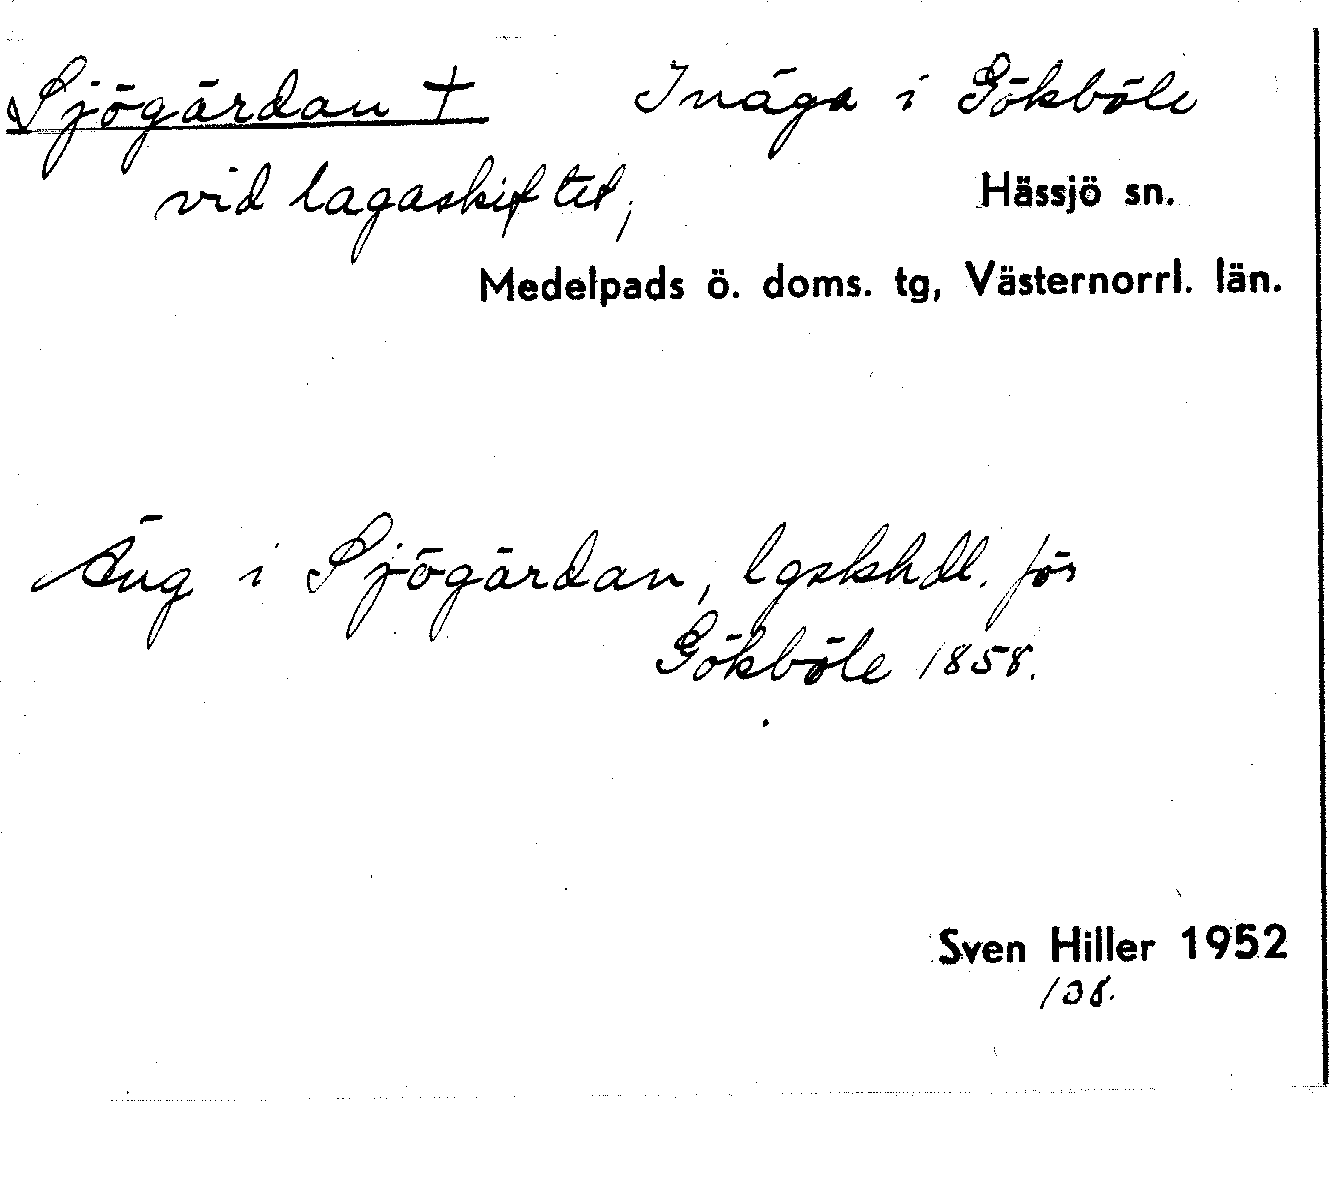 Sjögärdan † Inäga i Gökböle
vid lagaskiftet,
Hässjö sn.
Medelpads ö. doms. tg, Västernorrl. län.
Äng i Sjögärdan, lgskhdl. för
Gökböle 1858.
Sven Hiller 1952
108.